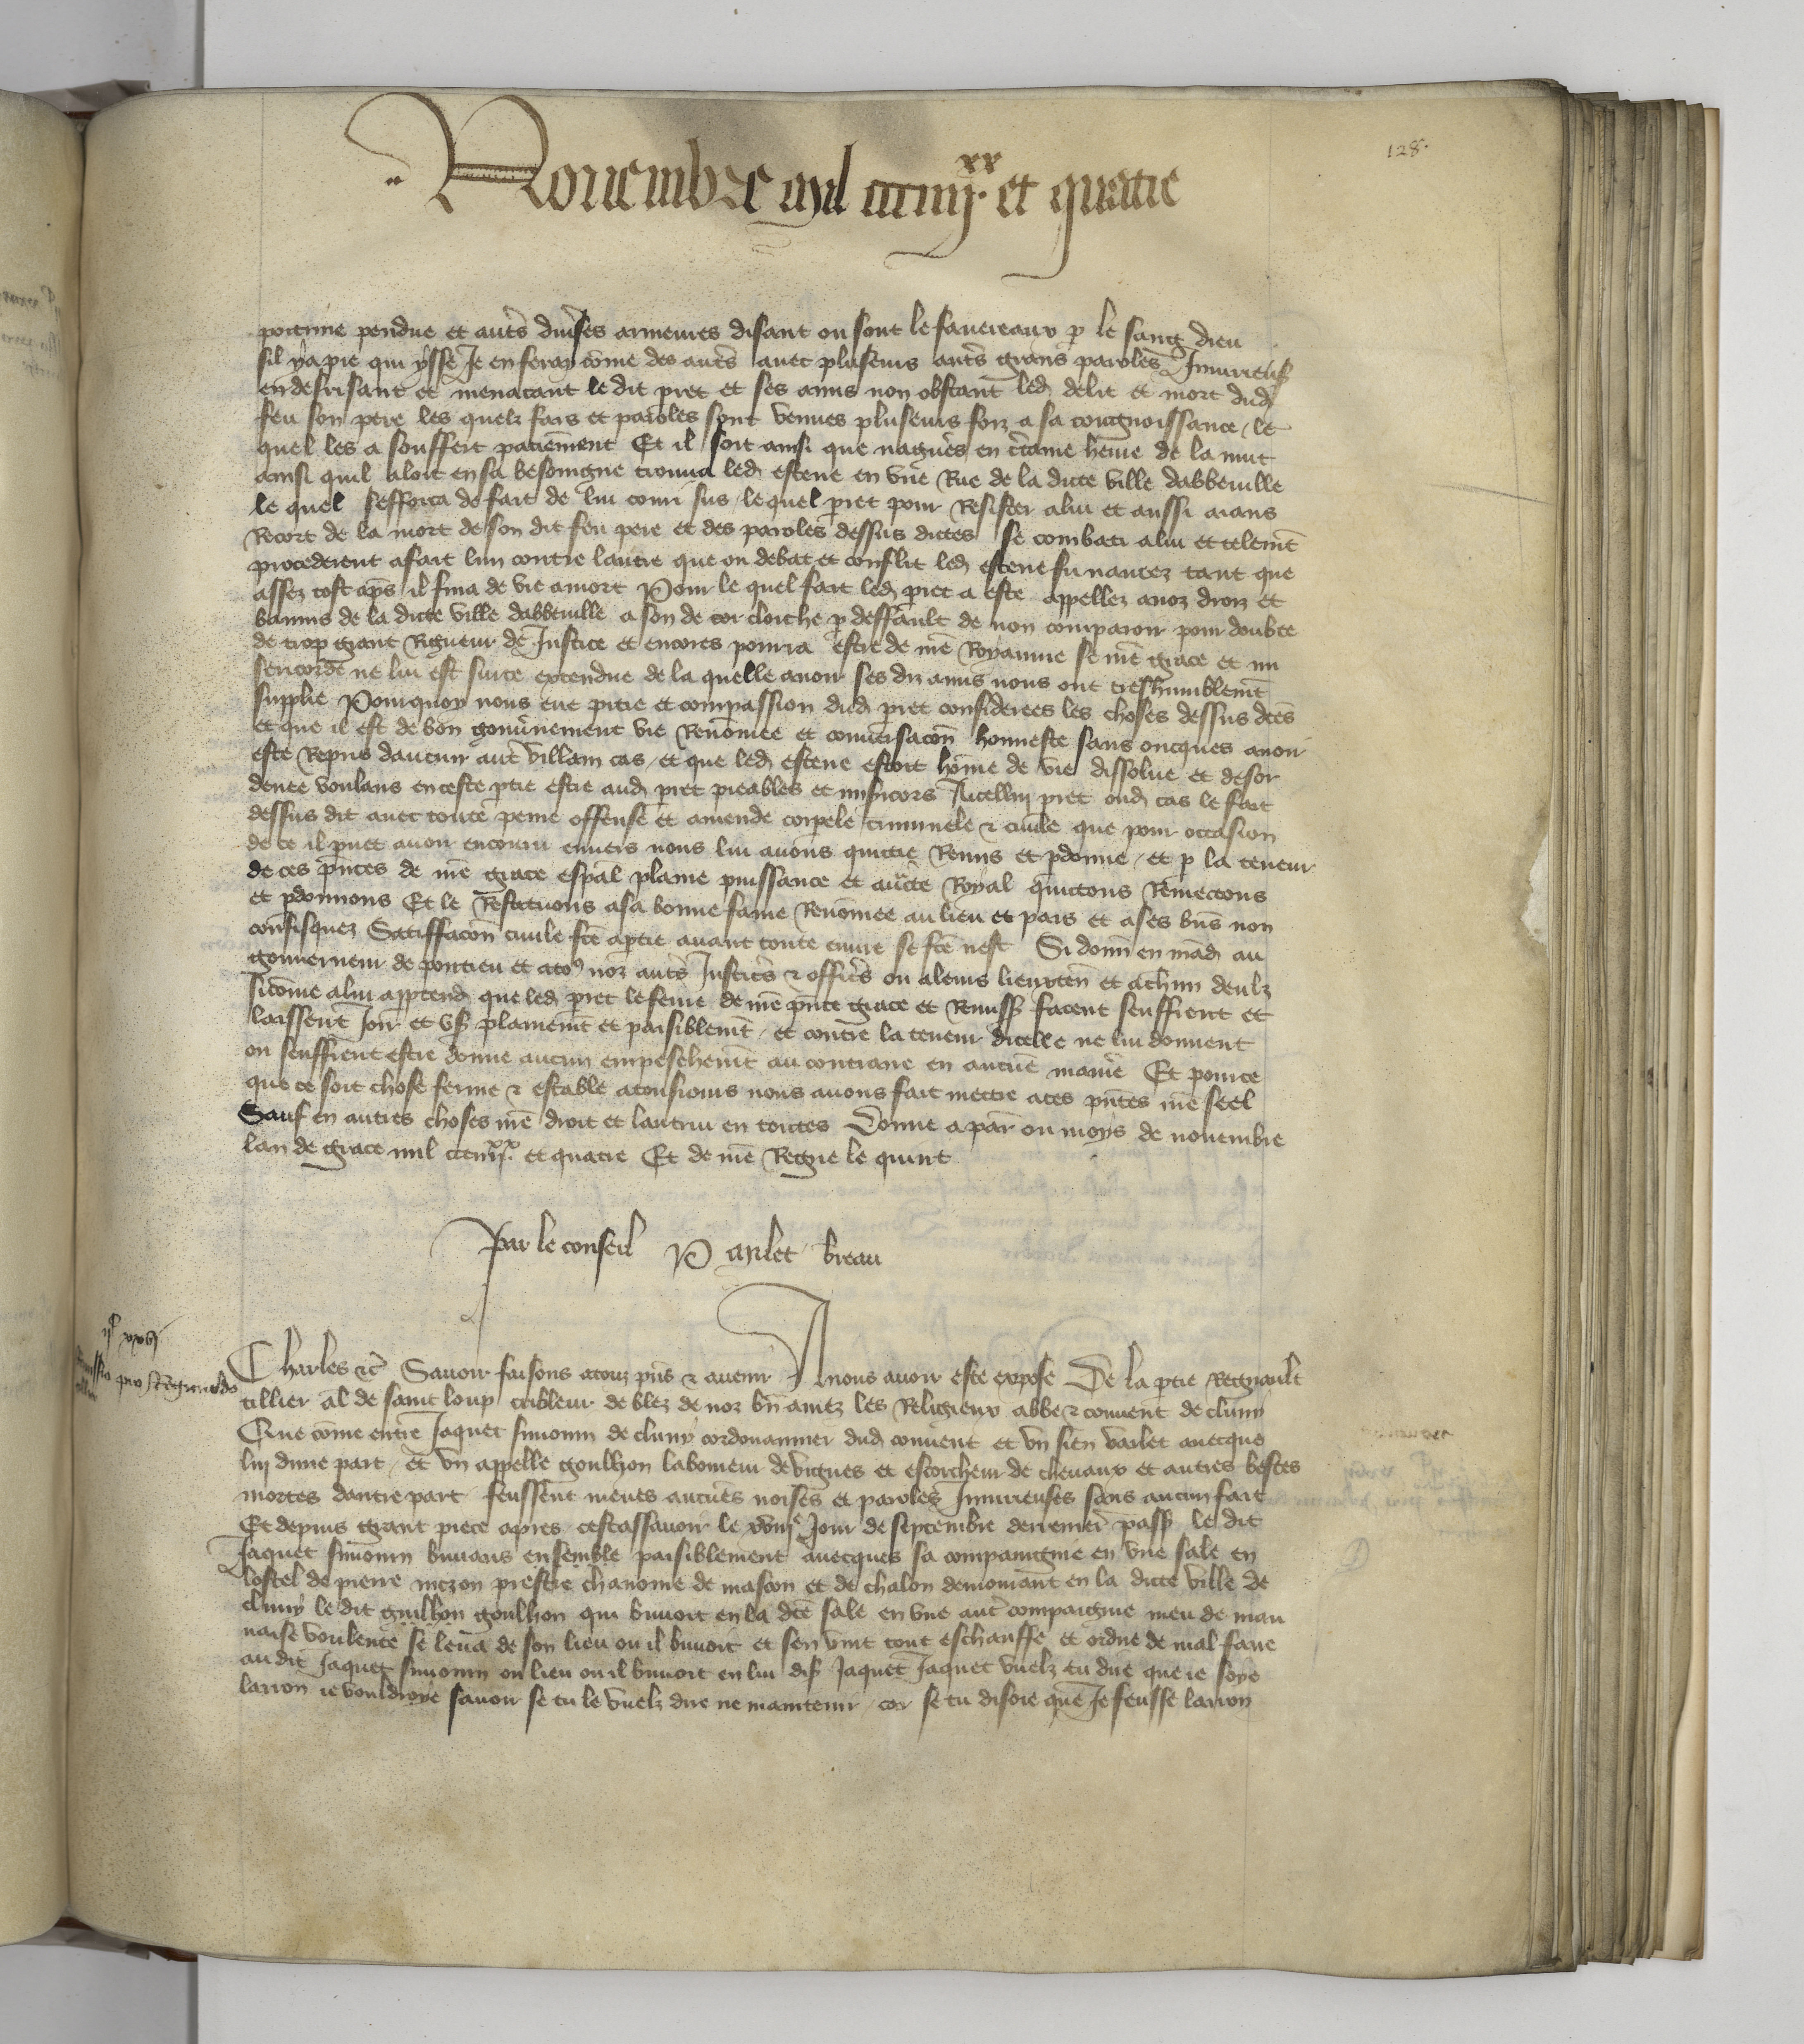 128.
Nouembre mil ccciiij.xx et quatre
poitrine pendue et autres diuerses armeures disant ou sont le sauereaux p le sang dieu
sil y a pie qui ysse Je en feray come des autres auec pluseurs autres grans paroles Iniurieuses
en desprisant et menacant le dit piet et ses amis non obstant led delit et mort dud
feu son pere les quelz fais et paroles sont venues pluseurs foiz a sa congnoissance / le
quel les a souffert paciement Et il soit ainsi que nagueres en certaine heure de la nuit
ainsi quil aloit en sa besoingne trouua led esteue en vne Rue de la dicte ville dabbeuille
le quel sefforca de fait de lui courir sus / le quel piet pour Resister a lui et aussi aians
Recort de la mort de son dit feu pere et des paroles dessus dictes se combati a lui et telemt
procederent a fait lun contre lautre que ou debat et conflit led esteue fu naurez tant que
assez tost aps il fina de vie a mort Pour le quel fait led piet a este appellez a noz droiz et
bannis de la dicte ville dabbeuille a son de cor cloiche p deffault de non comparoir pour doubte
de trop grant Rigueur de Justice et encores pourra estre de nre Royaume se nre grace et mi
sericorde ne lui est sur ce extendue de la quelle auoir ses diz amis nous ont treshumblemt
supplie Pourquoy nous eue pitie et compassion dud piet considerees les choses dessus dces
et que il est de bon gouuernement vie Renomee et conuersacon honneste sans oncques auoir
este Repris daucun autre villain cas / et que led esteue estoit home de vie dissolue et desor
denee voulans en ceste ptie estre aud piet pieables et misicors A icellui piet oud cas le fait
dessus dit auec toute peine offense et amende corpele criminele & ciuile que pour occasion
de ce il puet auoir encouru enuers nous lui auons quictie Remis et pdonne / et p la teneur
de ces pntes de nre grace espal plaine puissance et aucte Royal quictons Remectons
et pdonnons Et le Restituons a sa bonne fame Renomee au lieu et pais et a ses bns non
confisquez Satiffacon ciuile fce a ptie auant toute euure se fce nest Si donn en mand au
gouuerneur de pontieu et a toz noz autres Justices & officers ou a leurs lieuxten et a chun deulz
sicome a lui apptend que led piet le ferme de nre pnte grace et Remiss facent seuffrent et
laissent Joir et vs plainemt et paisiblemt / et contre la teneur dicelle ne lui donnent
ou seuffrent estre donne aucun empeschemt au contraire en aucune maniere Et pour ce
que ce soit chose ferme & estable a tousiours nous auons fait mettre a ces pntes nre seel
Sauf en autres choses nre droit et lautrui en toutes Donne a par ou moys de nouembre
lan de grace mil ccciiij.xx et quatre Et de nre Regne le quint
Par le conseil P milet breau
ijc xxvj
Remissio pro Regnaudo
tillier
Charles &c Sauoir faisons a touz pns & auenir A nous auoir este expose De la ptie Regnault
tillier al de saint loup cribleur de blez de noz bn amez les Religieux abbe & conuent de cluny
Que come entre Jaquet simonin de cluny cordouannier dud conuent et vn sien varlet auecque
lui dune part / et vn appelle goulhon laboureur de vignes et escorcheur de cheuaux et autres bestes
mortes dautre part feussent meues aucunes noises et paroles Iniurieuses sans aucun fait
Et depuis grant piece apres cestassauoir le xviije Jour de septembre derremer pass le dit
Jaquet simonin buuans ensemble paisiblement auecques sa compaingnie en vne sale en
lostel de pierre niczon prestre chanoine de mascon et de chalon demourant en la dicte ville de
cluny le dit guilhon goulhon qui buuoit en la dce sale en vne autre compaignie meu de mau
uaise voulente se leua de son lieu ou il buuoit et sen vint tout eschauffe et ordne de mal faire
au dit Jaquet simonin ou lieu ou il buuoit en lui dis Jaquet Jaquet vuelz tu dire que ie soye
larron ie vouldroye sauoir se tu le vuelz dire ne maintenir / car se tu disoie que Je feusse larron